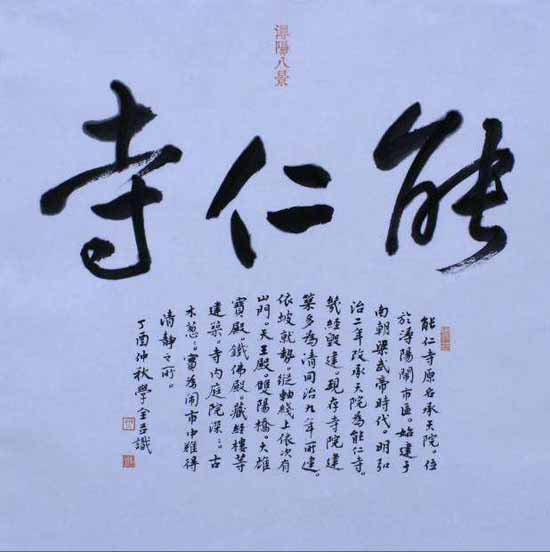 潯陽八景
能仁寺
能仁寺原名承天院。位
於潯陽鬧市區。始建于
南朝梁武帝時代。明弘
治二年改承天院為能仁寺。
幾經毀建。現存寺院建
築多為清同治九年所建。
依坡就勢。縱軸綫上依次有
山門。天王殿。雙陽橋。大雄
寶殿。鐵佛殿。藏经樓等
建築。寺内庭院深〻。古
木葱〻。實為鬧市中難得
清静之所。
丁酉仲秋學全識